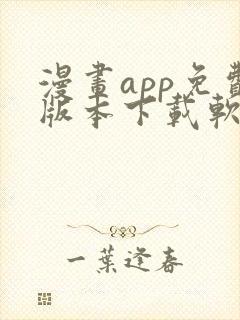 漫畫app免費
版本下載軟
一葉逢春